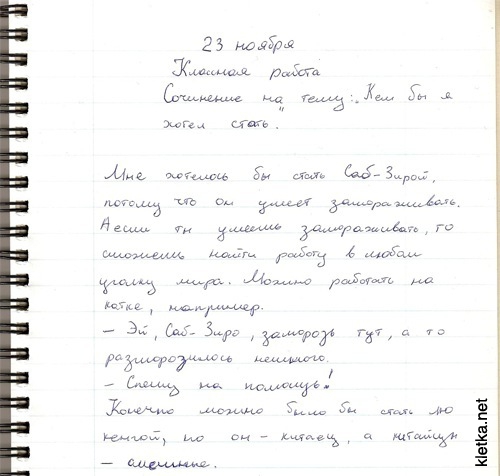 23 ноября
Класная работа
Сочинение на тему: „Кем бы я
хотел стать.
Мне хотелось бы стать Саб-Зирой,
потому что он умеет замораживать.
А если ты умеешь замораживать, то
сможешь найти работу в любом
уголку мира. Можно работать на
катке, например.
– Эй, Саб-Зиро, заморозь тут, а то
разморозилось немного.
– Спешу на помощь!
Конечно можно было бы стать лю
кенгой, но он – китаец, а китайцы
–
kletka.net